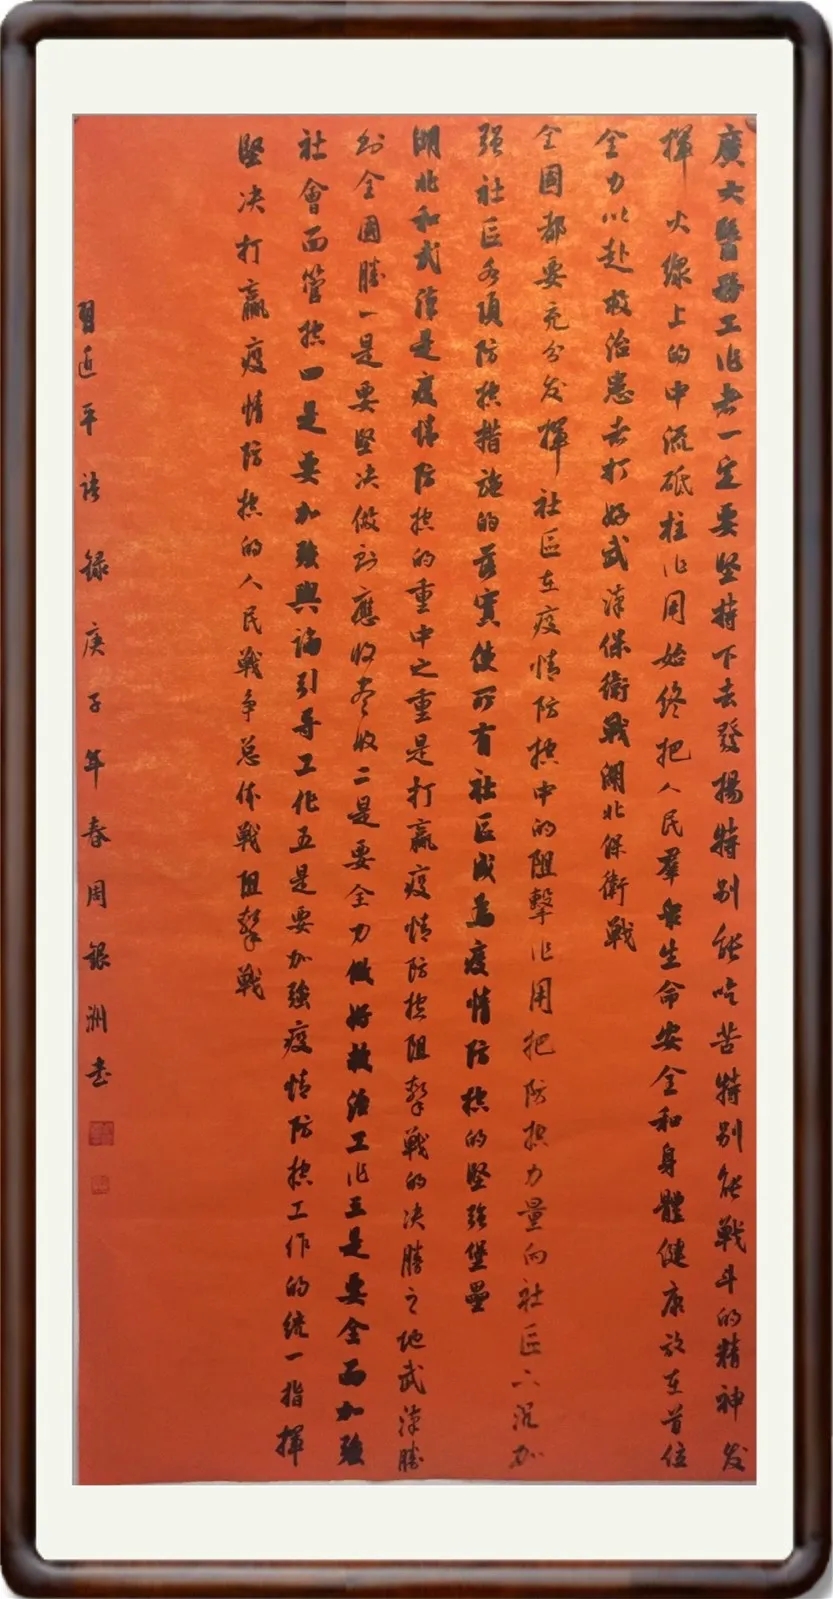 廣大醫務工作者一定要坚持下去發揚特别能吃苦特别能戰斗的精神发
揮火線上的中流砥柱作用始终把人民羣众生命安全和身體健康放在首位
全力以赴救治患者打好武漢保衛戰湖北保衛戰
全國都要充分发揮社区在疫情防控中的阻擊作用把防控力量向社区下沉加
强社区各項防控措施的落實使所有社区成为疫情防控的坚强堡壘
湖北和武漢是疫情防控的重中之重是打贏疫情防控阻擊戰的决勝之地武漢勝
则全國勝一是要坚决做到應收尽收二是要全力做好救治工作三是要全面加強
社會面管控四是要加強輿論引导工作五是要加強疫情防控工作的统一指揮
坚决打贏疫情防控的人民戰争总体戰阻擊戰
習近平语録庚子年春周銀洲书